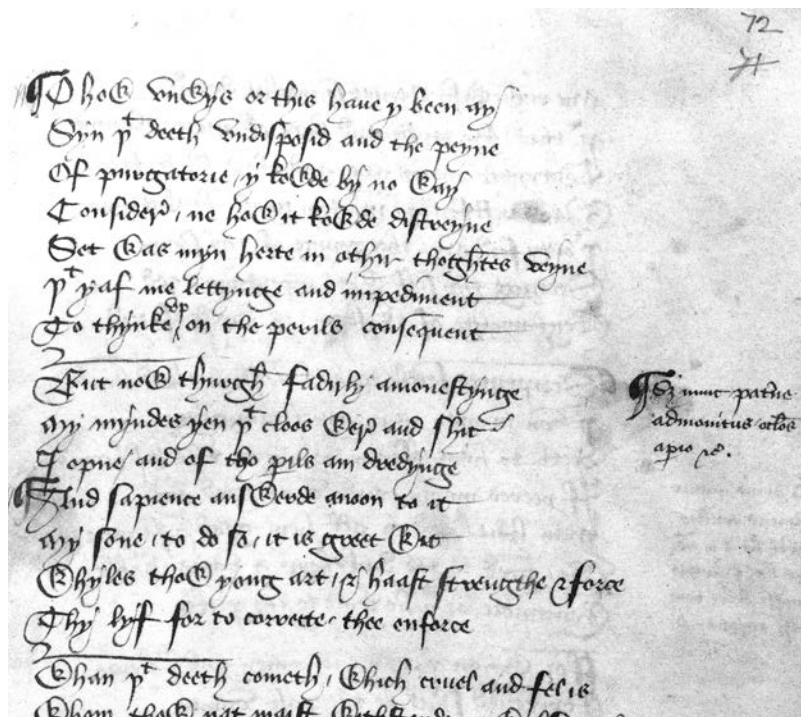 72
71
¶O how vnwys or this haue y been ay
Syn þt deeth vndisposid and the peyne
Of purgatorie / y kowde by no way
Considere / ne how it kowde distreyne
Set was myn herte in othir thoghtes veyne
þt yaf me lettynge and impediment
To thynke vp on the perils consequent
But now thurgh fadirly amonestynge
My myndes yen þt cloos wern and shit
I opne / and of tho perils am dredynge
¶And sapience answerde anoon to it
My sone / to do so / it is greet wit
Whyles thow yong art / & haast strengthe & force
Thy lyf for to correcte / thee enforce
Whan þt deeth cometh / which cruel and fel is
Whom thow nat maist withstande
¶Sz nunc patrne
admonitus oclos
aperio &c.